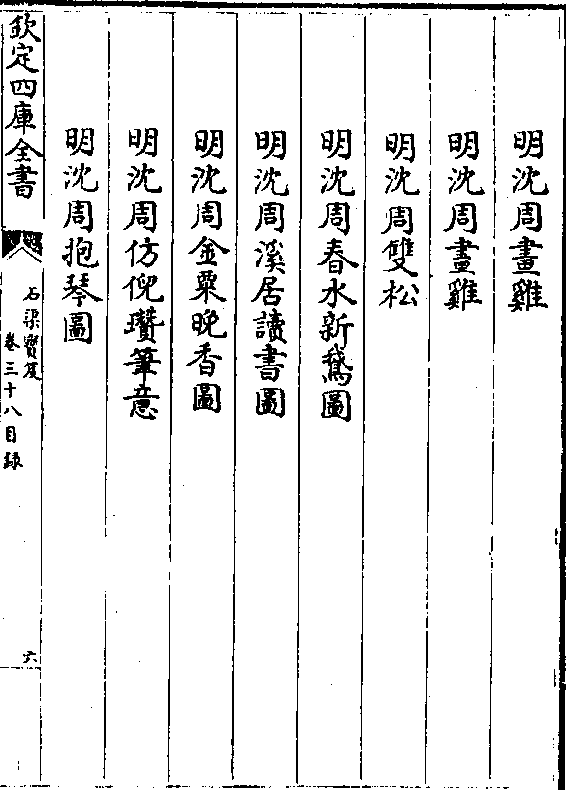 明沈周畫雞
明沈周畫雞
明沈周雙松
明沈周春水新鵞圖
明沈周溪居讀書圖
明沈周金粟晚香圖
明沈周仿倪瓚筆意
明沈周抱琴圖
欽定四庫全書
石渠寳笈
卷三十八目録
六